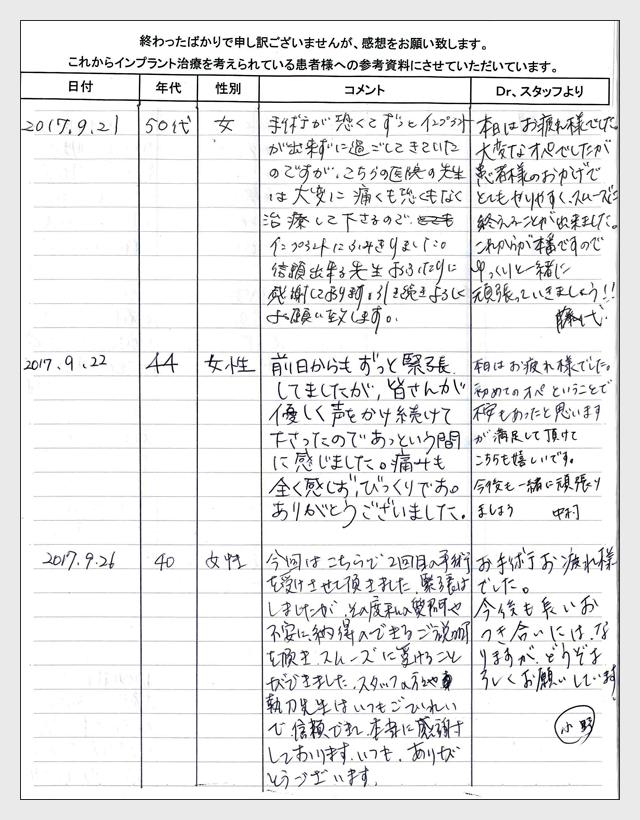 終わったばかりで申し訳ございませんが、感想をお願い致します。
これからインプラント治療を考えられている患者様への参考資料にさせていただいています。
日付 年代 性別 コメント Dr、スタッフより
2017.9.21 50代 女
手術が恐くてずっとインプラント
が出来ずに過ごしてきていた
のですが、こちらの医院の先生
は大変に痛くも恐くもなく
治療して下さるので、
インプラントにふみきりました。
信頼出来る先生おふたりに
感謝しております。引き続きよろしく
お願い致します。
本日はお疲れ様でした。
大変なオペでしたが
患者様のおかげで
とてもやりやすく、スムーズに
終えることが出来ました。
これからが本番ですので
ゆっくりと一緒に
頑張っていきましょう!!
藤代
2017.9.22 44 女性
前日からもずっと緊張
してましたが、皆さんが
優しく声をかけ続けて
下さったのであっという間
に感じました。痛みも
全く感じず、びっくりです。
ありがとうございました。
本日はお疲れ様でした。
初めてのオペということで
不安もあったと思います
が満足して頂けて
こちらも嬉しいです。
今後も一緒に頑張り
ましょう 中村
2017.9.26 40 女性
今回はこちらで2回目の手術
を受けさせて頂きました。緊張は
しましたが、その度私の質問や
不安に納得のできるご説明
を頂き、スムーズに受けること
ができました。スタッフの方や
執刀先生はいつもごていねい
で信頼でき、本当に感謝
しております。いつも、ありが
とうございます。
お手術お疲れ様
でした。
今後も長いお
つき合いには、な
りますが、どうぞよ
ろしくお願いしています。
小野